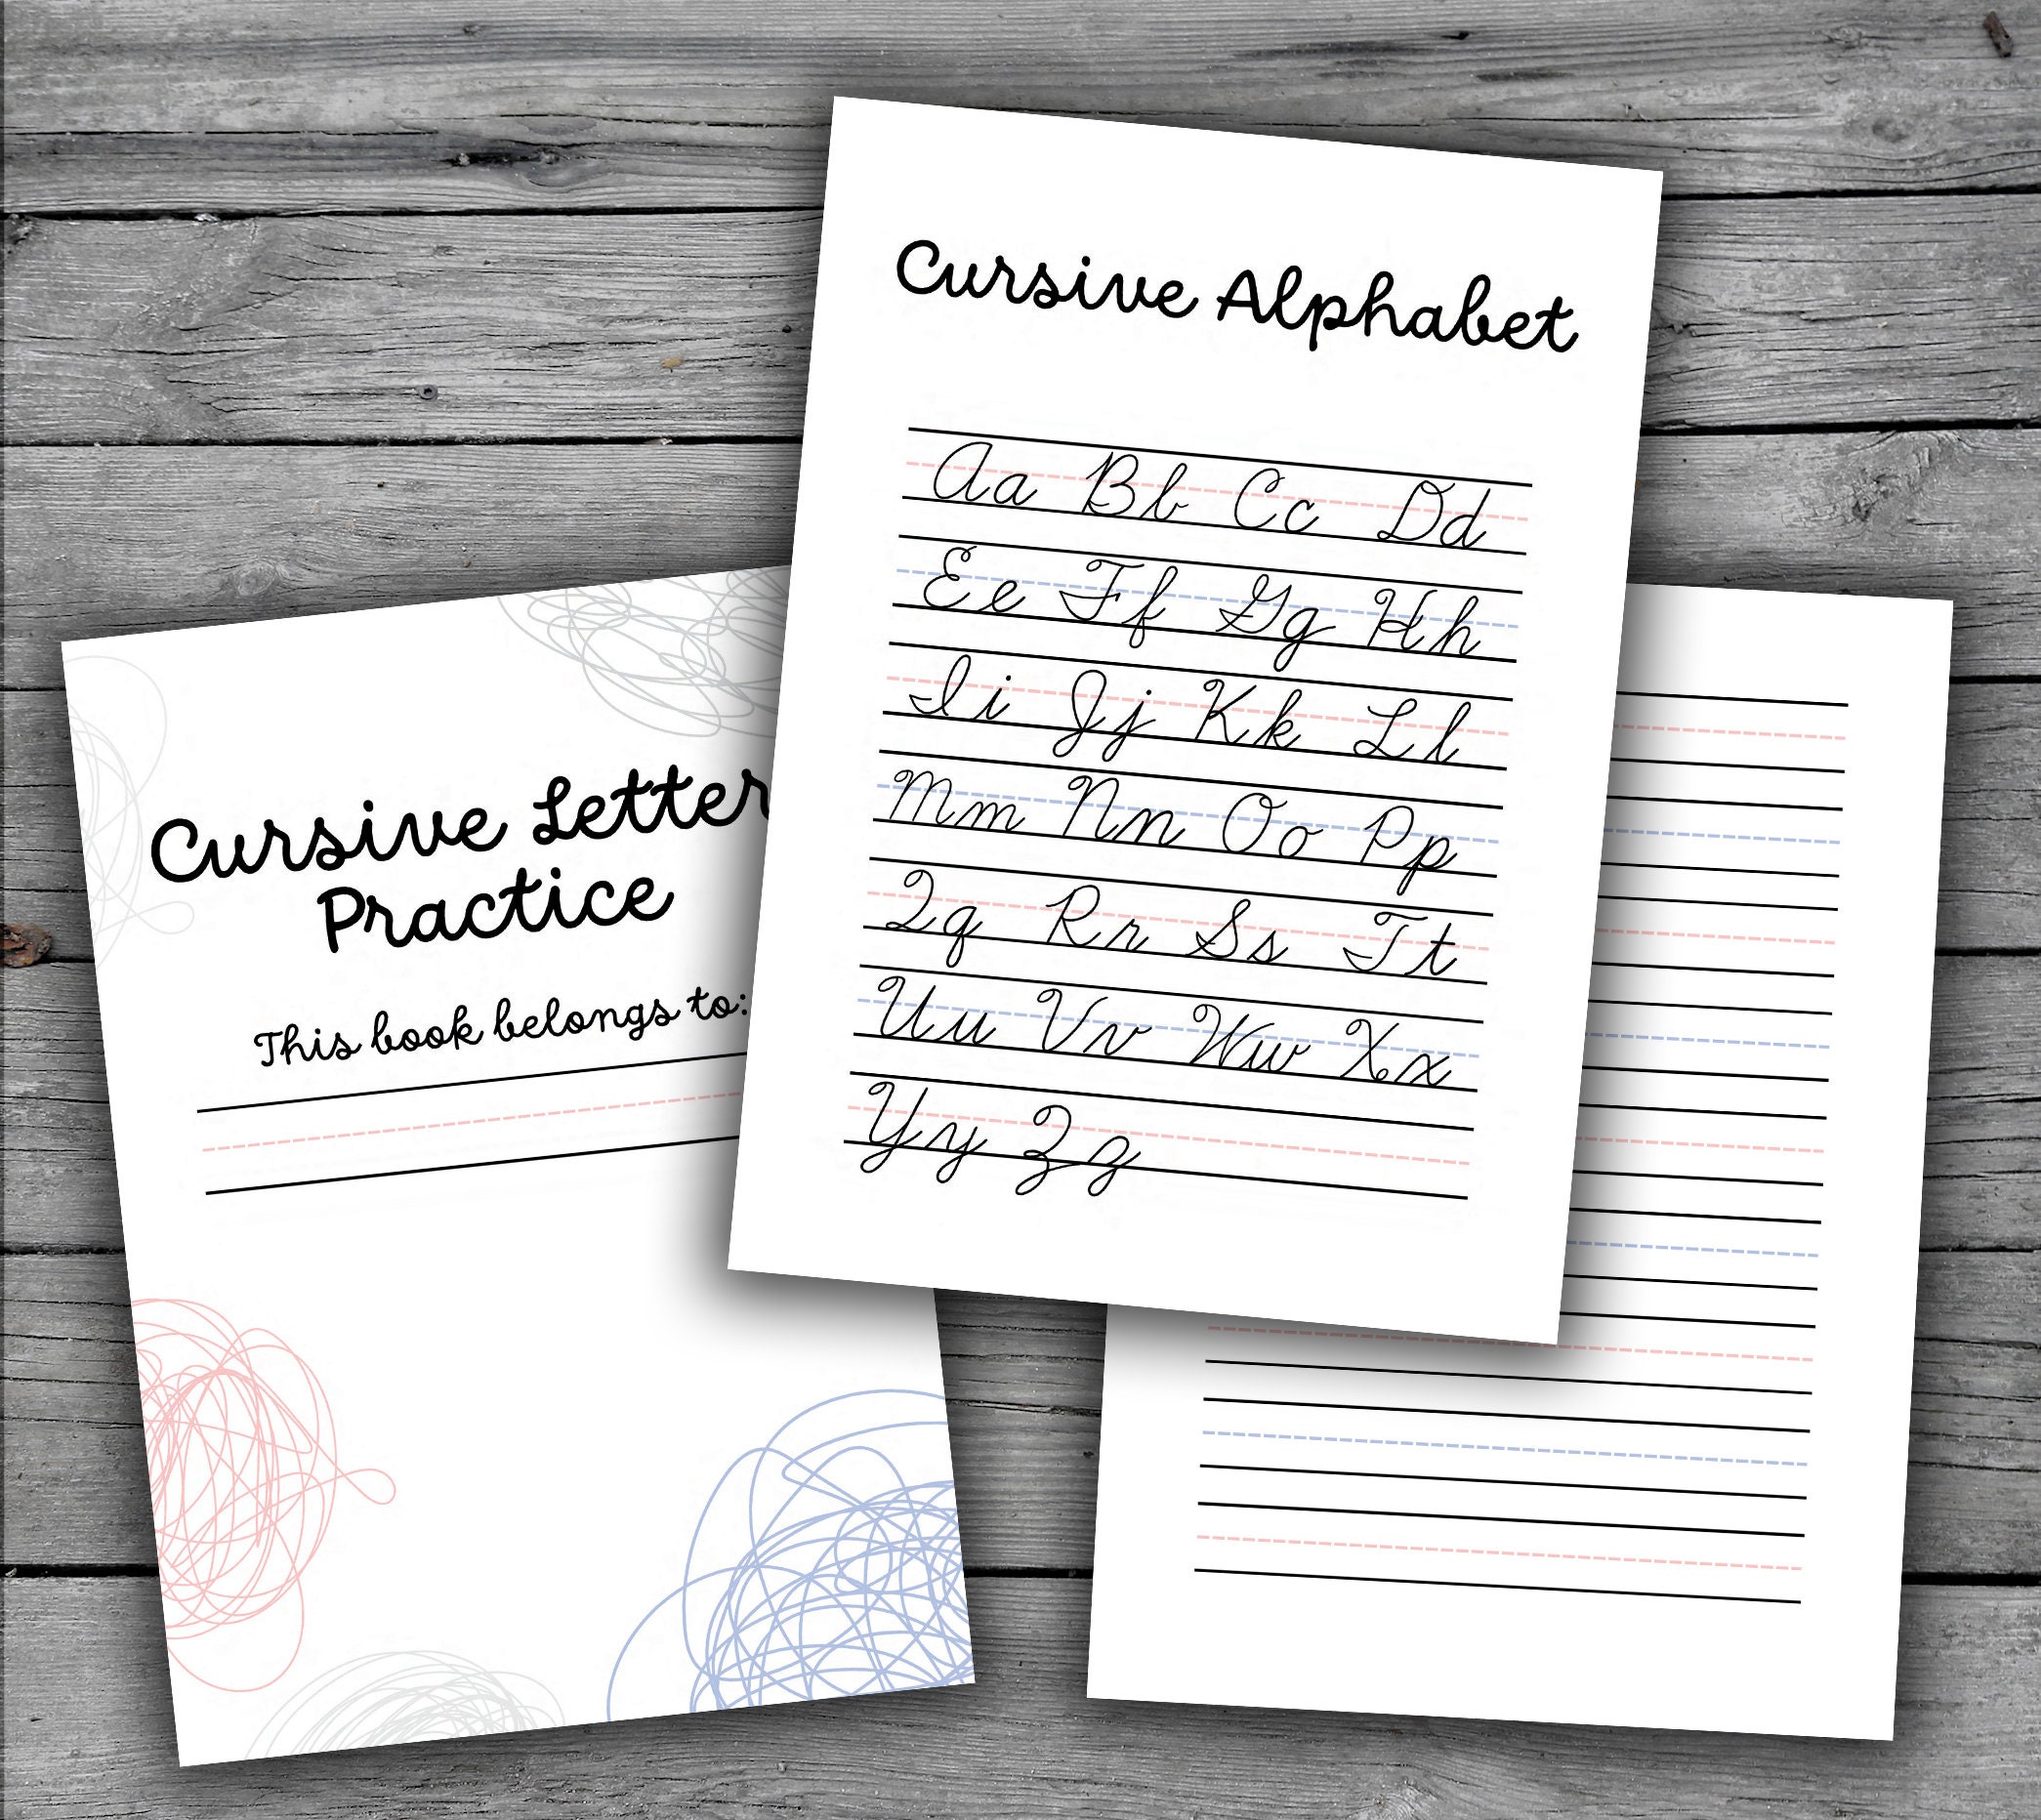 Cursive Alphabet
Aa Bb Cc Dd
Ee Ff Gg Hh
Ii Jj Kk Ll
Mm Nn Oo Pp
Qq Rr Ss Tt
Uu Vv Ww Xx
Yy Zz
Cursive Letter
Practice
This book belongs to: